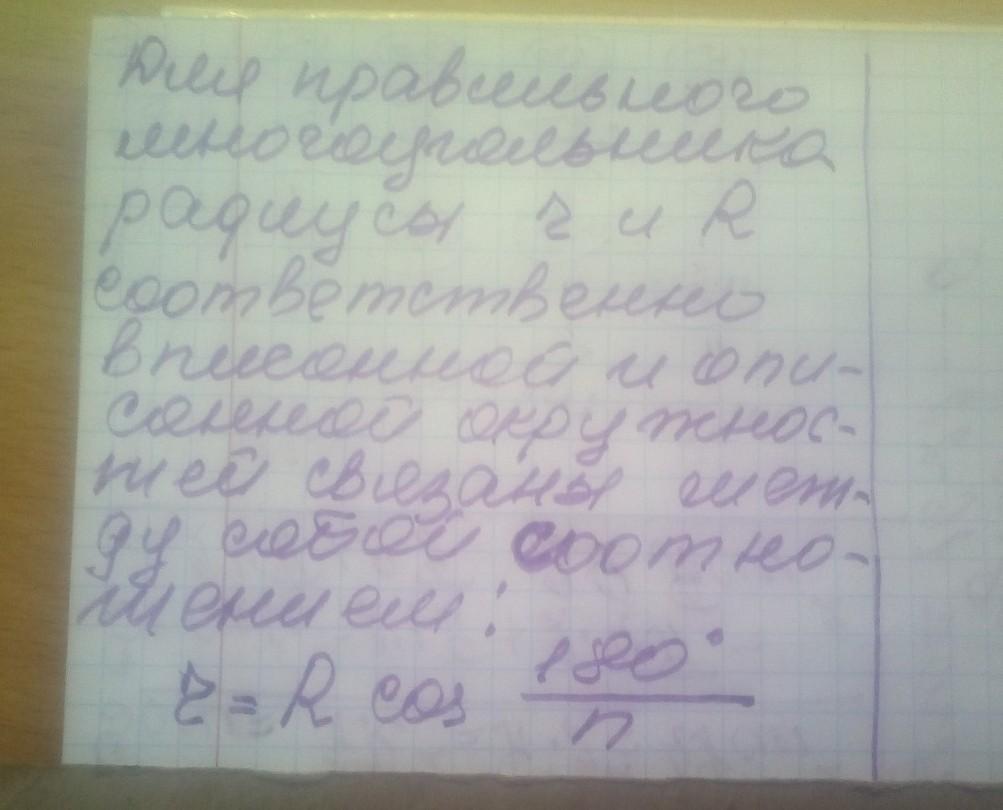 Для правильного
многоугольника
радиусы r и R
соответственно
вписанной и опи-
санной окружнос-
тей связаны меж-
ду собой соотно-
шением:
r = R cos 180°/n